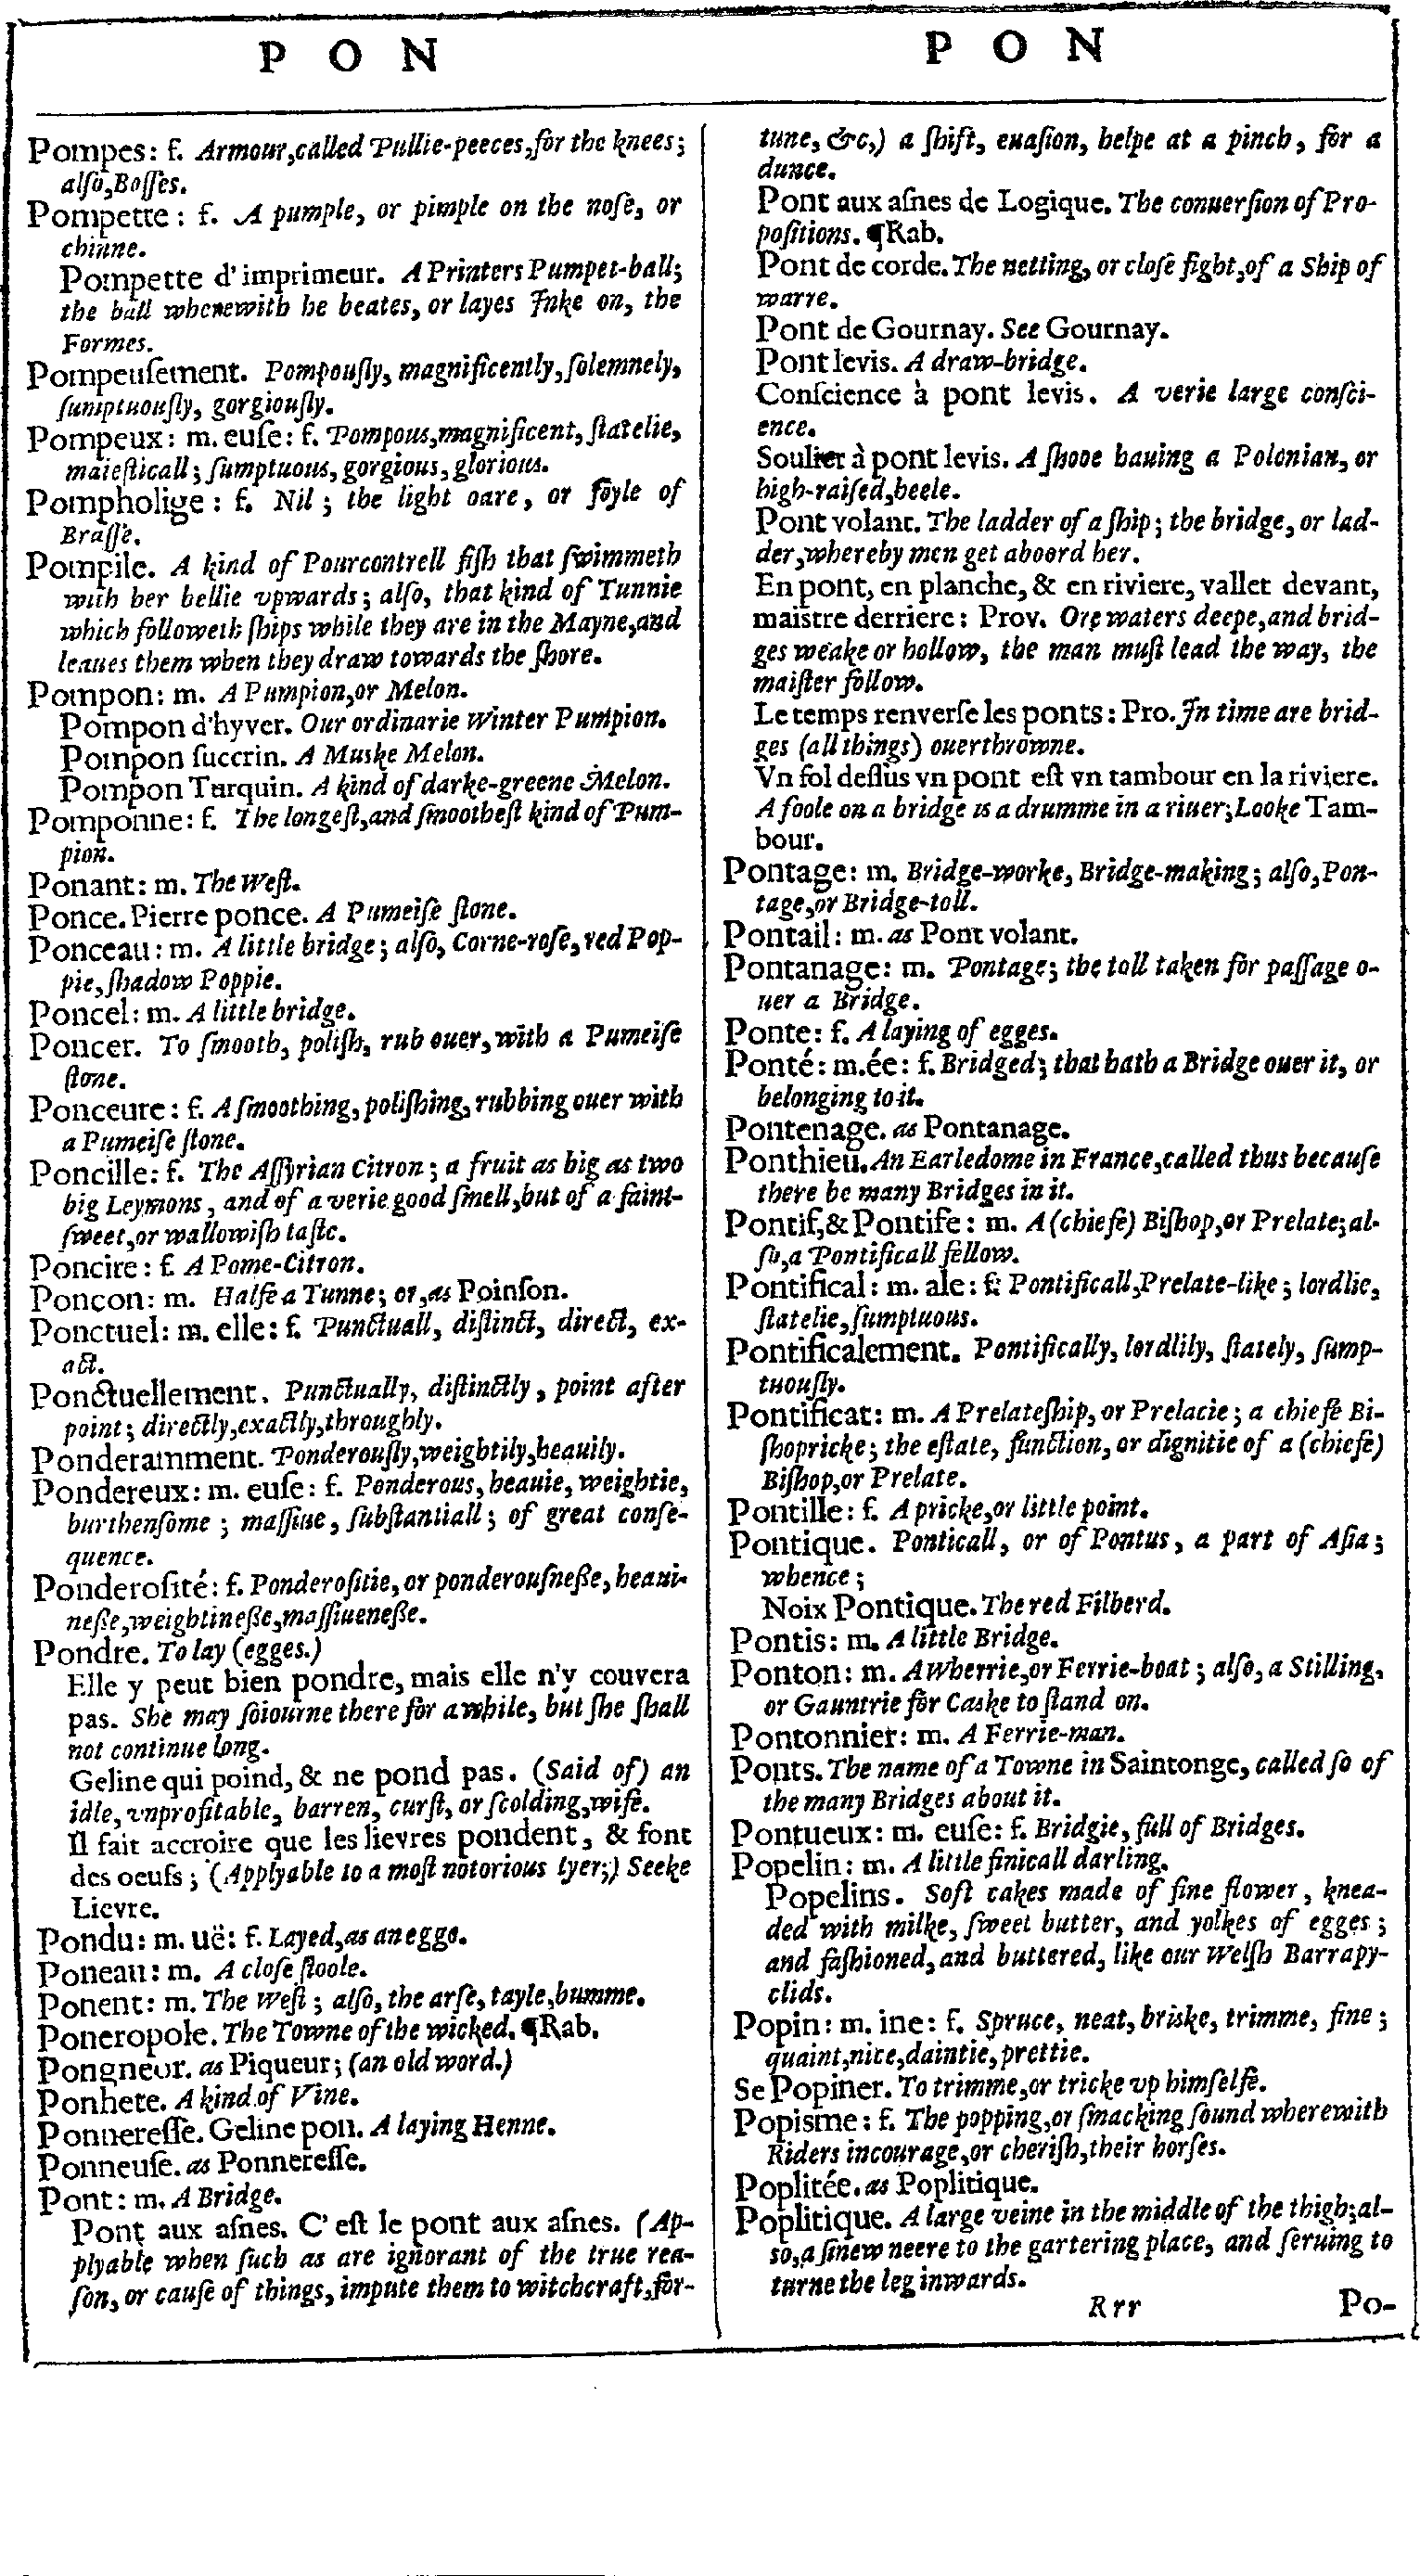 P O N
P O N
Pompes: f. Armour,called Pullie-peeces,for the knees;
alſo,Boſſes.
Pompette: f. A pumple, or pimple on the noſe, or
chinne.
Pompette d'imprimeur. A Printers Pumpet-ball;
the ball wherewith he beates, or layes Inke on, the
Formes.
Pompeuſement. Pompouſly, magnificently, ſolemnely,
ſumptuouſly, gorgiouſly.
Pompeux: m. euſe: f. Pompous,magnificent, ſtatelie,
maieſticall; ſumptuous, gorgious, glorious.
Pompholige: f. Nil; the light oare, or foyle of
Braſſe.
Pompile. A kind of Pourcontrell fiſh that ſwimmeth
with her bellie vpwards; alſo, that kind of Tunnie
which followeth ſhips while they are in the Mayne,and
leaues them when they draw towards the ſhore.
Pompon: m. A Pumpion,or Melon.
Pompon d'hyver. Our ordinarie Winter Pumpion.
Pompon ſuccrin. A Muske Melon.
Pompon Turquin. A kind of darke-greene Melon.
Pomponne: f. The longeſt,and ſmootheſt kind of Pum-
pion.
Ponant: m. The Weſt.
Ponce. Pierre ponce. A Pumeiſe ſtone.
Ponceau: m. A little bridge; alſo, Corne-roſe, red Pop-
pie, ſhadow Poppie.
Poncel: m. A little bridge.
Poncer. To ſmooth, poliſh, rub ouer, with a Pumeiſe
ſtone.
Ponceure: f. A ſmoothing, poliſhing, rubbing ouer with
a Pumeiſe ſtone.
Poncille: f. The Aſſyrian Citron; a fruit as big as two
big Leymons, and of a verie good ſmell,but of a faint-
ſweet,or wallowiſh taſte.
Poncire: f. A Pome-Citron.
Poncon: m. Halfe a Tunne; or,as Poinſon.
Ponctuel: m. elle: f. Punctuall, diſtinct, direct, ex-
act.
Ponctuellement. Punctually, diſtinctly, point after
point; directly,exactly,throughly.
Ponderamment. Ponderouſly,weightily,heauily.
Pondereux: m. euſe: f. Ponderous, heauie, weightie,
burthenſome; maſſiue, ſubſtantiall; of great conſe-
quence.
Ponderoſité: f. Ponderoſitie, or ponderouſneſſe, heaui-
neſſe,weightineſſe,maſſiueneſſe.
Pondre. To lay (egges.)
Elle y peut bien pondre, mais elle n'y couvera
pas. She may ſoiourne there for a while, but ſhe ſhall
not continue long.
Geline qui poind, & ne pond pas. (Said of) an
idle, vnprofitable, barren, curſt, or ſcolding,wife.
Il fait accroire que les lievres pondent, & font
des oeufs; (Applyable to a moſt notorious lyer;) Seeke
Lievre.
Pondu: m. uë: f. Layed,as an egge.
Poneau: m. A cloſe ſtoole.
Ponent: m. The Weſt; alſo, the arſe, tayle,bumme.
Poneropole. The Towne of the wicked. ¶Rab.
Pongneur. as Piqueur; (an old word.)
Ponhete. A kind of Vine.
Ponnereſſe. Geline pon. A laying Henne.
Ponneuſe. as Ponnereſſe.
Pont: m. A Bridge.
Pont aux aſnes. C'eſt le pont aux aſnes. (Ap-
plyable when ſuch as are ignorant of the true rea-
ſon, or cauſe of things, impute them to witchcraft,for-
tune, &c,) a ſhift, euaſion, helpe at a pinch, for a
dunce.
Pont aux aſnes de Logique. The conuerſion of Pro-
poſitions. ¶Rab.
Pont de corde. The netting, or cloſe fight,of a Ship of
warre.
Pont de Gournay. See Gournay.
Pont levis. A draw-bridge.
Conſcience à pont levis. A verie large conſci-
ence.
Soulier à pont levis. A ſhooe hauing a Polonian, or
high-raiſed,heele.
Pont volant. The ladder of a ſhip; the bridge, or lad-
der,whereby men get aboord her.
En pont, en planche, & en riviere, vallet devant,
maistre derriere: Prov. Ore waters deepe,and brid-
ges weake or hollow, the man muſt lead the way, the
maiſter follow.
Le temps renverſe les ponts: Pro. In time are brid-
ges (all things) ouerthrowne.
Vn fol deſſus vn pont eſt vn tambour en la riviere.
A foole on a bridge is a drumme in a riuer; Looke Tam-
bour.
Pontage: m. Bridge-worke, Bridge-making; alſo,Pon-
tage,or Bridge-toll.
Pontail: m. as Pont volant.
Pontanage: m. Pontage; the toll taken for paſſage o-
uer a Bridge.
Ponte: f. A laying of egges.
Ponté: m.ée: f. Bridged; that hath a Bridge ouer it, or
belonging to it.
Pontenage. as Pontanage.
Ponthieu. An Earledome in France,called thus becauſe
there be many Bridges in it.
Pontif,&Pontife: m. A (chiefe) Biſhop,or Prelate; al-
ſo,a Pontificall fellow.
Pontifical: m. ale: f: Pontificall,Prelate-like; lordlie,
ſtatelie, ſumptuous.
Pontificalement. Pontifically, lordlily, ſtately, ſump-
tuouſly.
Pontificat: m. A Prelateſhip, or Prelacie; a chiefe Bi-
ſhopricke; the eſtate, function, or dignitie of a (chiefe)
Biſhop,or Prelate.
Pontille: f. A pricke,or little point.
Pontique. Ponticall, or of Pontus, a part of Aſia;
whence;
Noix Pontique. The red Filberd.
Pontis: m. A little Bridge.
Ponton: m. A Wherrie,or Ferrie-boat; alſo, a Stilling,
or Gauntrie for Caske to ſtand on.
Pontonnier: m. A Ferrie-man.
Ponts. The name of a Towne in Saintonge, called ſo of
the many Bridges about it.
Pontueux: m. euſe: f. Bridgie, full of Bridges.
Popelin: m. A little finicall darling.
Popelins. Soft cakes made of fine flower, knea-
ded with milke, ſweet butter, and yolkes of egges;
and faſhioned, and buttered, like our Welſh Barrapy-
clids.
Popin: m. ine: f. Spruce, neat, briske, trimme, fine;
quaint,nice,daintie,prettie.
Se Popiner. To trimme,or tricke vp himſelfe.
Popisme: f. The popping,or ſmacking ſound wherewith
Riders incourage,or cheriſh,their horſes.
Poplitée. as Poplitique.
Poplitique. A large veine in the middle of the thigh; al-
so,a ſinew neere to the gartering place, and ſeruing to
turne the leg inwards.
Rrr
Po-